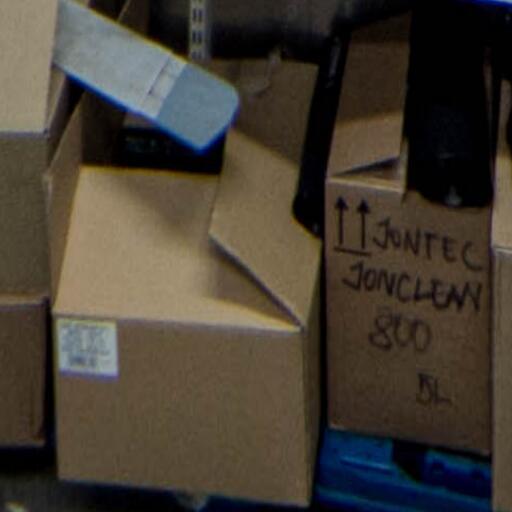 JONTEC
JONCLEAN
800
5L